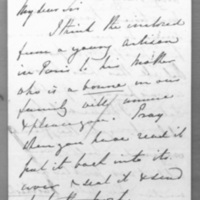 My dear Sir
I think the enclosed
from a young artisan
in Paris to his mother
who is a in our
family will
& please you. Pray
when you have read it
put it back into its
& seal it & send